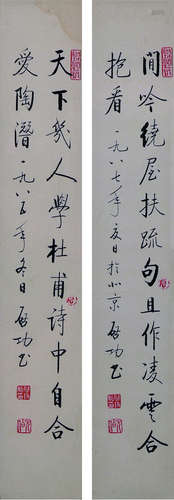 間吟繞屋扶疏句且作凌雲合
抱看 一九八七年夏日於北京 啟功書
天下幾人學杜甫詩中自合
愛陶潛 一九八五年冬日 啟功書